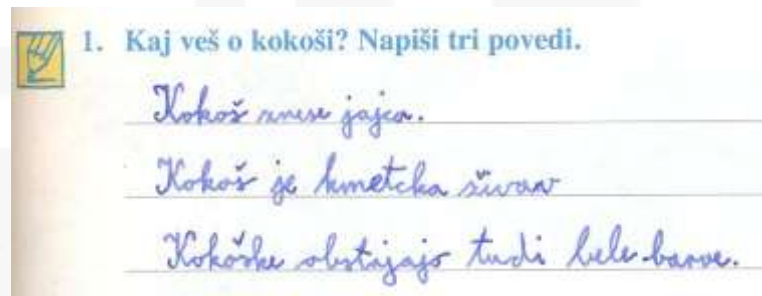 1. Kaj veš o kokoši? Napiši tri povedi.
Kokoš znese jajca.
Kokoš je kmetcka živav
Kokoške obstajajo tudi bele barve.